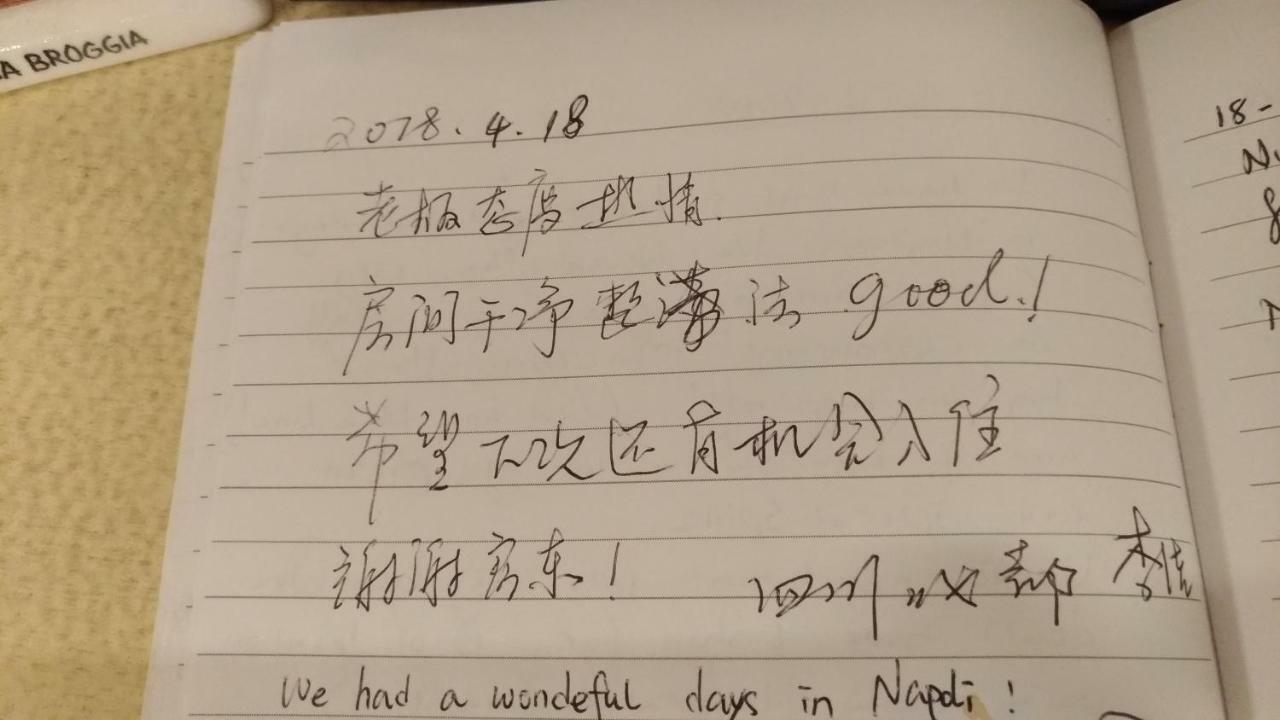 A BROGGIA
2018.4.18
老板态度热情.
房间干净整洁 good.!
希望下次还有机会入住
谢谢房东!
四川 成都 李倩
We had a wondeful days in Napoli!
18-